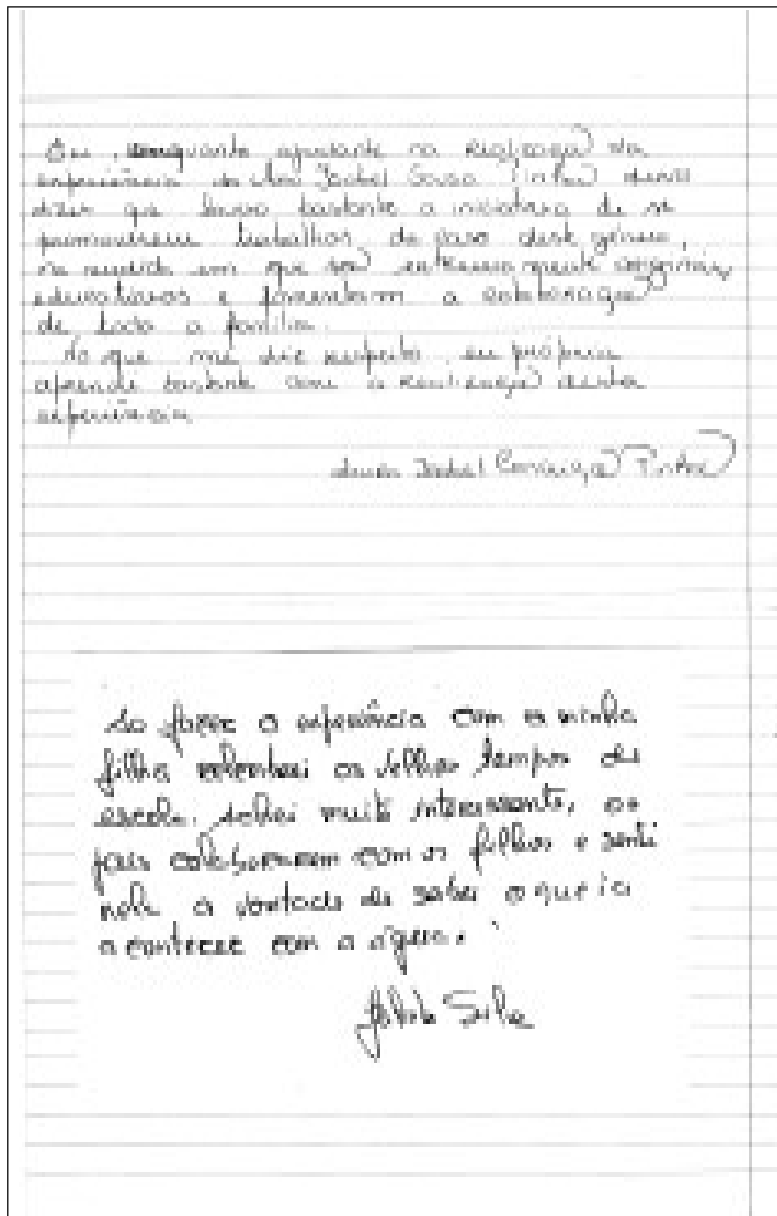 Eu, enquanto ajudante na realização da
experiência da Ana Isabel Sousa Pinho devo
dizer que louvo bastante a iniciativa de se
promoverem trabalhos de casa deste género,
na medida em que são extremamente originais,
educativos e fomentam a colaboração
de toda a família.
No que me diz respeito, eu própria
aprendi bastante com a realização desta
experiência
Isabel
Ao fazer a experiência com a minha
filha relembrei os velhos tempos de
escola. Achei muito interessante, os
pais colaborarem com os filhos e senti
nela a vontade de saber o que ia
acontecer com a água.
Silva